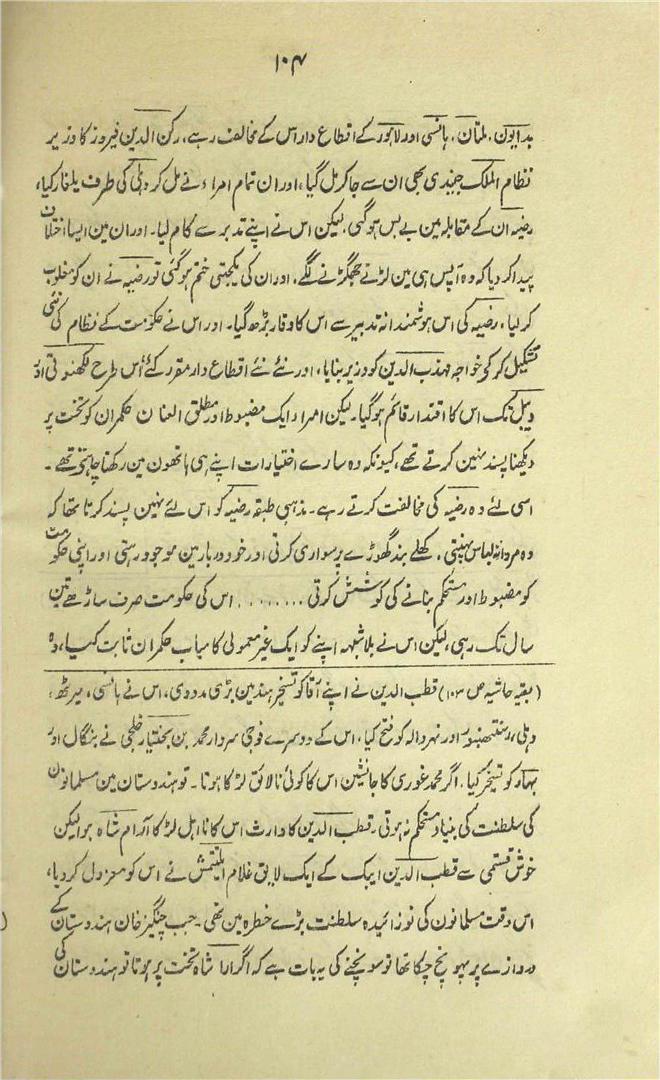 ۱۰۴
بدایون، ملتان، ہانسی اور لاہور کے اقطاع دار اس کے مخالف رہے، رکن الدین فیروز کا وزیر
نظام الملک جنیدی بھی ان سے جا کر مل گیا، اور ان تمام امراء نے مل کر دہلی کی طرف یلغار کیا،
رضیہ ان کے مقابلہ مین بے بس ہوگئی، لیکن اس نے اپنے تدبر سے کام لیا۔ اور ان مین ایسا اختلاف
پیدا کر دیا کہ وہ آپس ہی مین لڑنے جھگڑنے لگے، اور ان کی یکجہتی ختم ہوگئی تو رضیہ نے ان کو مغلوب
کر لیا، رضیہ کی اس ہوشمندانہ تدبیر سے اس کا وقار بڑھ گیا۔ اور اس نے حکومت کے نظام کی نئی
تشکیل کر کے خواجہ مہذب الدین کو وزیر بنایا، اور نئے نئے اقطاع دار مقرر کئے اس طرح لکھنوتی اور
دیبل تک اس کا اقتدار قائم ہوگیا۔ لیکن امراء ایک مضبوط اور مطلق العنان حکمران کو تخت پر
دیکھنا پسند نہین کرتے تھے، کیونکہ وہ سارے اختیارات اپنے ہی ہاتھون مین رکھنا چاہتے تھے۔
اسی لئے وہ رضیہ کی مخالفت کرتے رہے۔ مذہبی طبقہ رضیہ کو اس لئے نہین پسند کرتا تھا کہ
وہ مردانہ لباس پہنتی، کھلے بند گھوڑے پر سواری کرتی اور خود دربار مین موجود رہتی اور اپنی حکومت
کو مضبوط اور مستحکم بنانے کی کوشش کرتی ........ اس کی حکومت صرف ساڑھے تین
سال تک رہی، لیکن اس نے بلاشبہہ اپنے کو ایک غیر معمولی کامیاب حکمران ثابت کیا، وہ
(بقیہ حاشیہ ص ۱۰۳) قطب الدین نے اپنے آقا کو تسخیر ہند مین بڑی مدد دی، اس نے ہانسی، میرٹھ،
دہلی، رنتھنبور اور نہروالہ کو فتح کیا، اس کے دوسرے فوجی سردار محمد بن بختیار خلجی نے بنگال اور
بہار کو تسخیر کیا، اگر محمد غوری کا جانشین اس کا کوئی نالائق لڑکا ہوتا۔ تو ہندوستان مین مسلمانون
کی سلطنت کی بنیاد مستحکم نہ ہوتی۔ قطب الدین کا وارث اس کا نااہل لڑکا آرام شاہ ہوا لیکن
خوش قسمتی سے قطب الدین ایبک کے ایک لایق غلام ایلتتمش نے اس کو معزول کر دیا،
اس وقت مسلمانون کی نوزائیدہ سلطنت بڑے خطرہ مین تھی۔ جب چنگیز خان ہندوستان کے
دروازے پر پہونچ چکا تھا تو سوچنے کی یہ بات ہے کہ اگر ارا شاہ تخت پر ہوتا تو ہندوستان کی